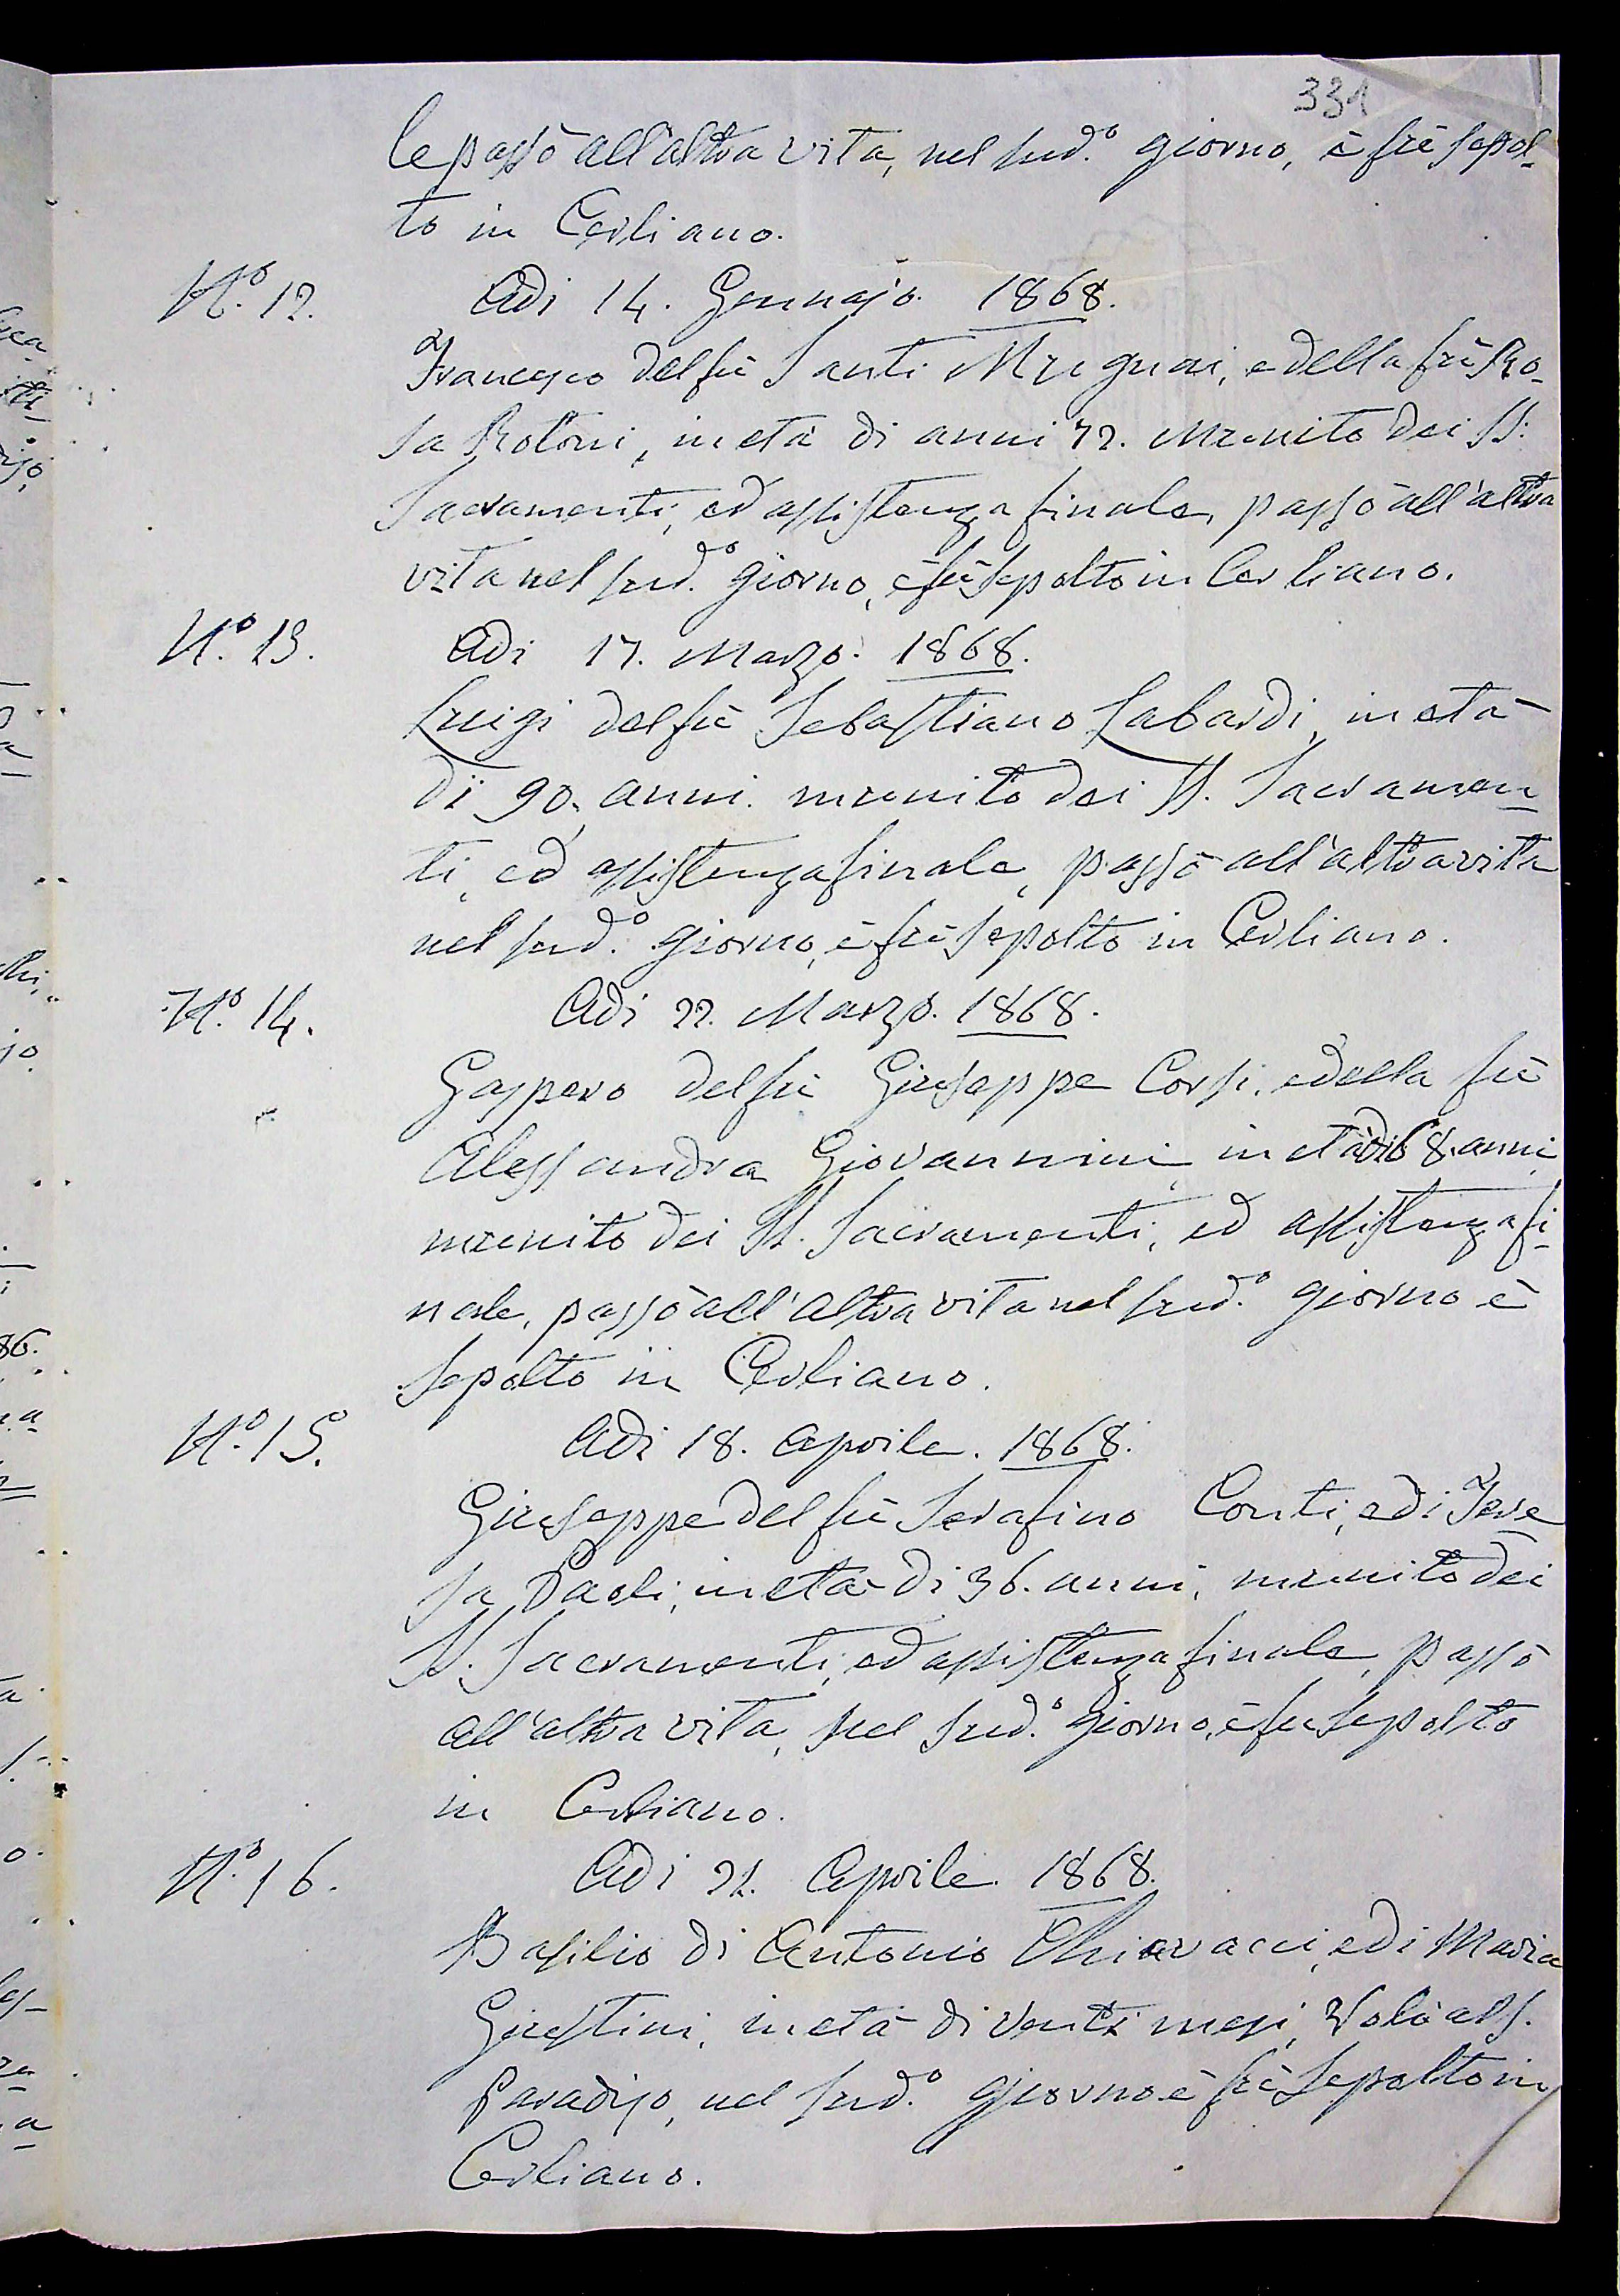 331
le passò all'altra vita, nel sud.º giorno, è fù sepol-
to in Cerliano.
N.º 12. Adi 14. Gennajo. 1868.
Francesco del fù Santi Mugnai, e della fù Ro-
sa Rotoni, in età di anni 72. munito dei SS.
Sacramenti, ed assistenza finale, passò all'altra
vita nel sud.º giorno, è fù sepolto in Cerliano.
N.º 13. Adi 17. Marzo. 1868.
Luigi del fù Sebastiano Labardi, in età
di 90. anni. munito dei SS. Sacramen-
ti, ed assistenza finale, passò all'altra vita
nel sud.º giorno, è fù sepolto in Cerliano.
N.º 14. Adi 22. Marzo. 1868.
Gaspero del fù Giuseppe Corsi, e della fù
Alessandra Giovannini, in età di 68. anni,
munito dei SS. Sacramenti, ed assistenza fi-
nale, passò all'altra vita nel sud.º giorno è
sepolto in Cerliano.
N.º 15. Adi 18. Aprile. 1868.
Giuseppe del fù Serafino Conti, e di Tere
sa Paoli, in età di 36. anni, munito dei
SS. Sacramenti, ed assistenza finale, passò
all'altra vita, nel sud.º Giorno, è fù sepolto
in Cerliano.
N.º 16. Adi 21. Aprile. 1868.
Basilio di Antonio Chiavacci, e di Maria
Giustini, in età di Venti mesi, Volò al S.
Paradiso, nel sud.º giorno è fù Sepolto in
Cerliano.